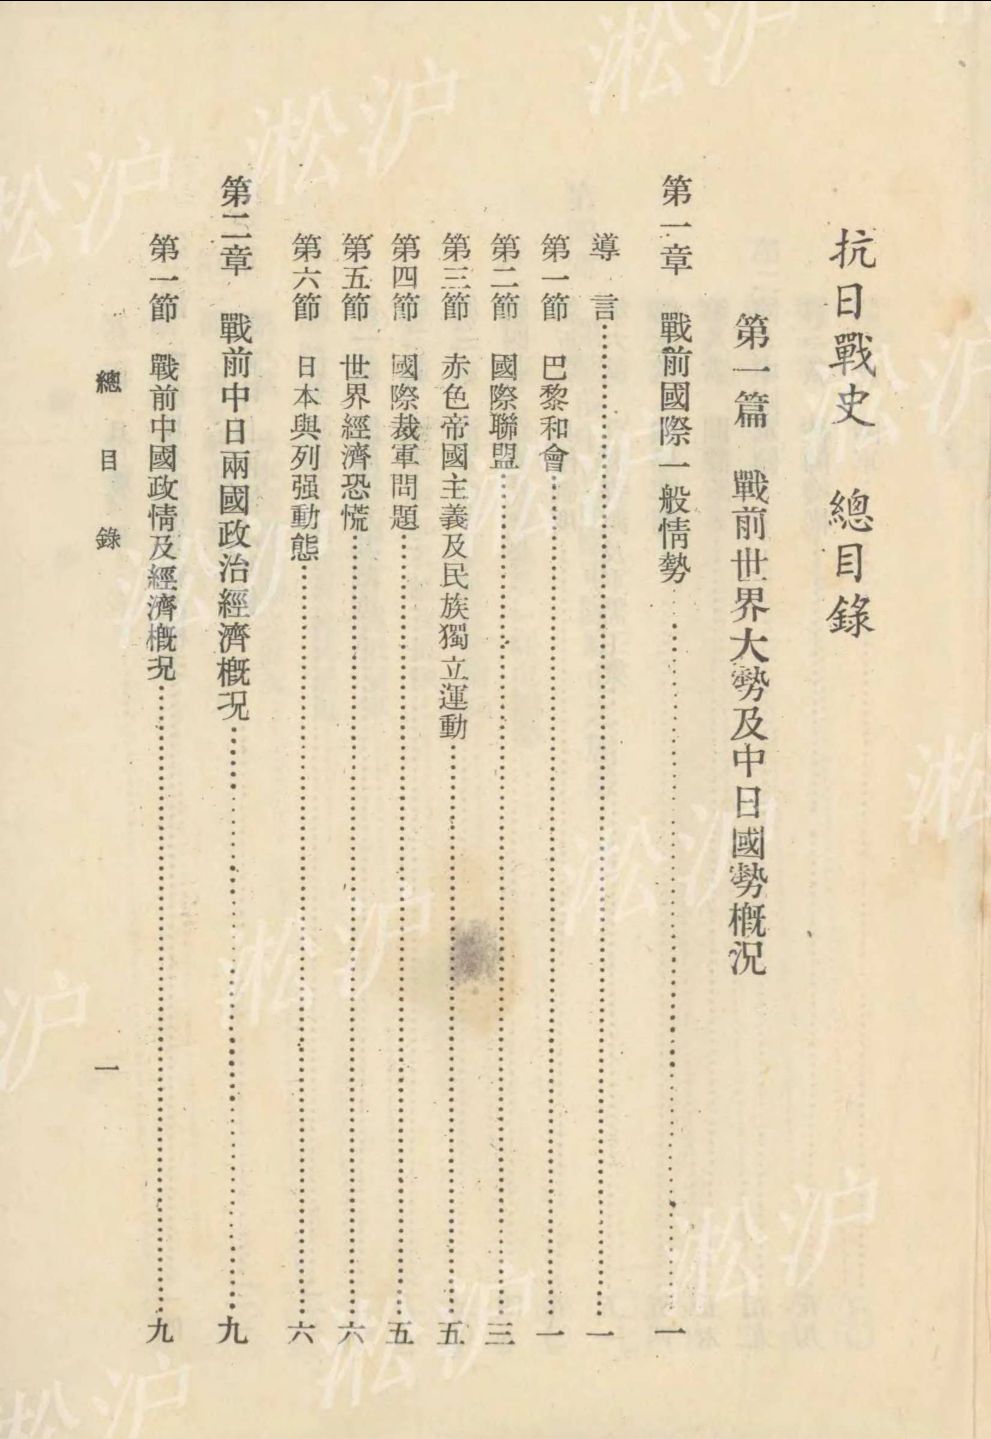 抗日戰史　總目錄
第一篇　戰前世界大勢及中日國勢概況
第一章　戰前國際一般情勢……一
導　言……一
第一節　巴黎和會……一
第二節　國際聯盟……三
第三節　赤色帝國主義及民族獨立運動……五
第四節　國際裁軍問題……五
第五節　世界經濟恐慌……六
第六節　日本與列强動態……六
第二章　戰前中日兩國政治經濟概況……九
第一節　戰前中國政情及經濟概況……九
總目錄　一
淞沪